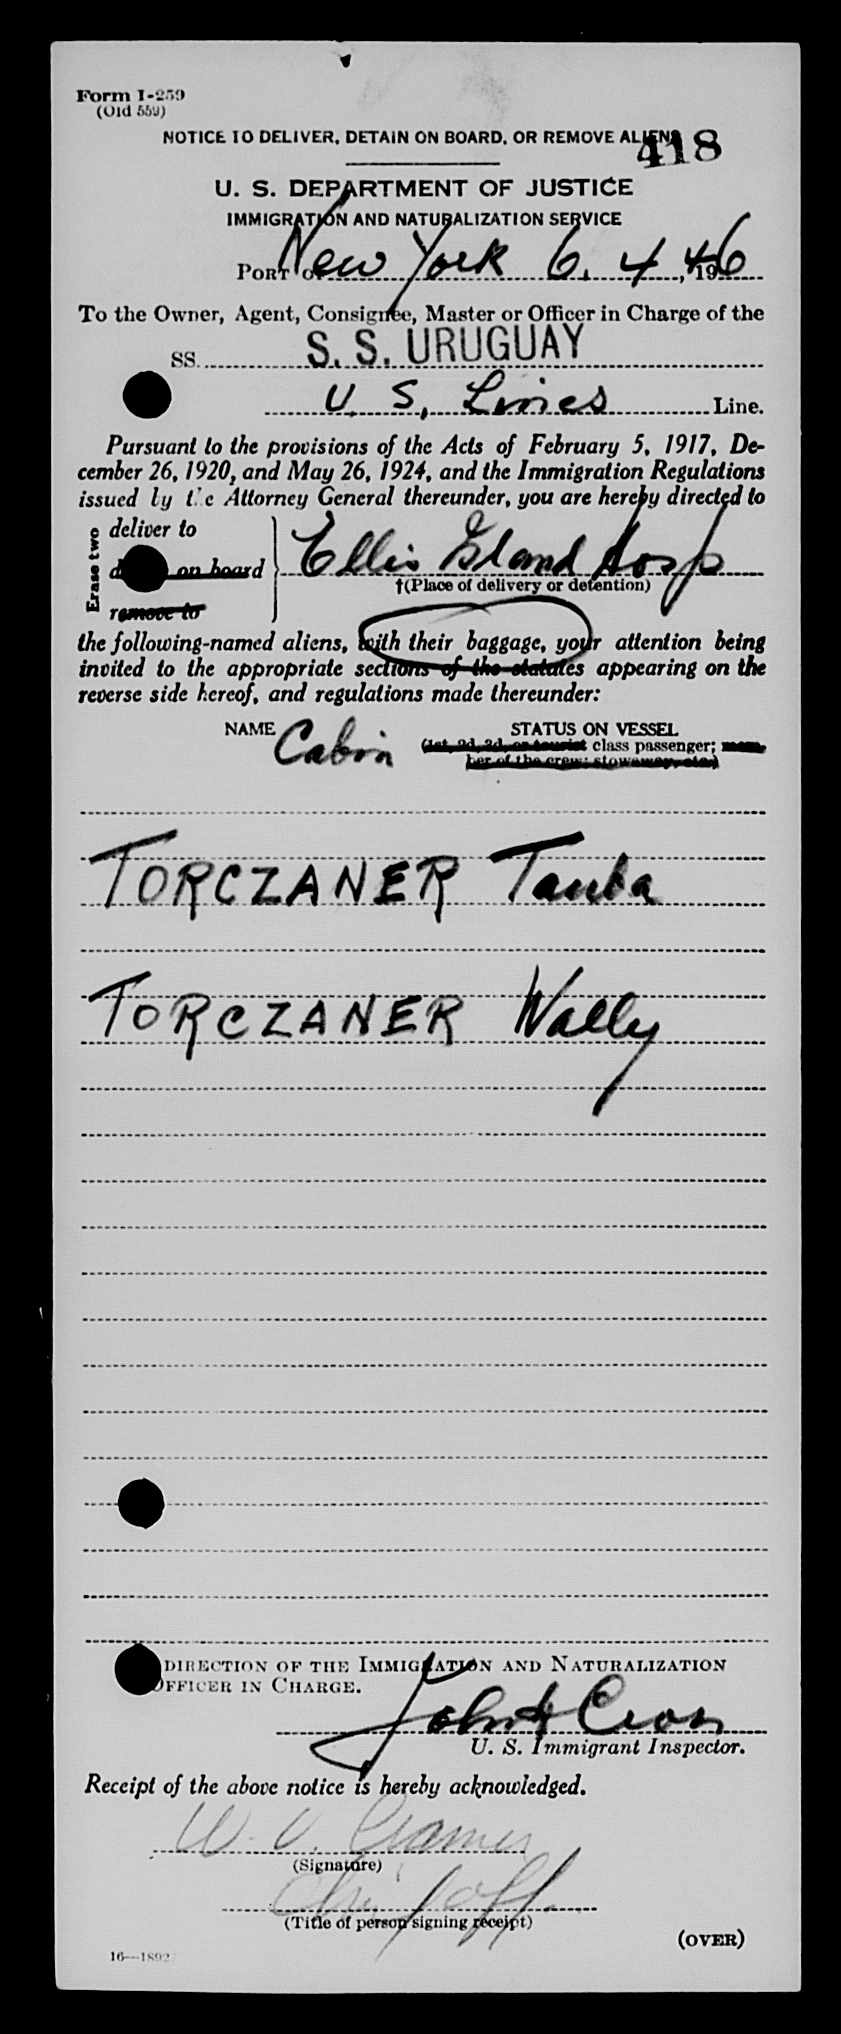 Form I-259
(Old 559)
NOTICE TO DELIVER, DETAIN ON BOARD, OR REMOVE ALIENS
418
U. S. DEPARTMENT OF JUSTICE
IMMIGRATION AND NATURALIZATION SERVICE
PORT OF New York 6. 4, 1946
To the Owner, Agent, Consignee, Master or Officer in Charge of the
SS. S. S. URUGUAY
U. S. Lines Line.
Pursuant to the provisions of the Acts of February 5, 1917, De-
cember 26, 1920, and May 26, 1924, and the Immigration Regulations
issued by the Attorney General thereunder, you are hereby directed to
Erase two
deliver to
on board
remove to
Ellis Island Hosp
†(Place of delivery or detention)
the following-named aliens, with their baggage, your attention being
invited to the appropriate sections of the statutes appearing on the
reverse side hereof, and regulations made thereunder:
NAME Cabin STATUS ON VESSEL
(1st, 2d, 3d, or tourist class passenger; mem-
ber of the crew; stowaway, etc.)
TORCZANER Tauba
TORCZANER Wally
DIRECTION OF THE IMMIGRATION AND NATURALIZATION
OFFICER IN CHARGE.
John H Cron
U. S. Immigrant Inspector.
Receipt of the above notice is hereby acknowledged.
W. V. Cramer
(Signature)
Chief Off.
(Title of person signing receipt)
(OVER)
16—1892